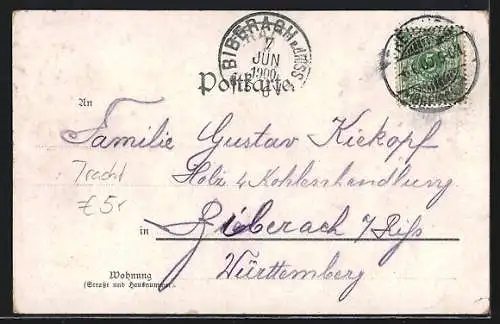 BIBERACH a.d. RISS
7
JUN
1900
Postkarte
5
An
Familie Gustav Kiekopf
Tracht
Holz & Kohlenhandlung
£5-
in Biberach / Riß
Württemberg
Wohnung
(Straße und Hausnummer)